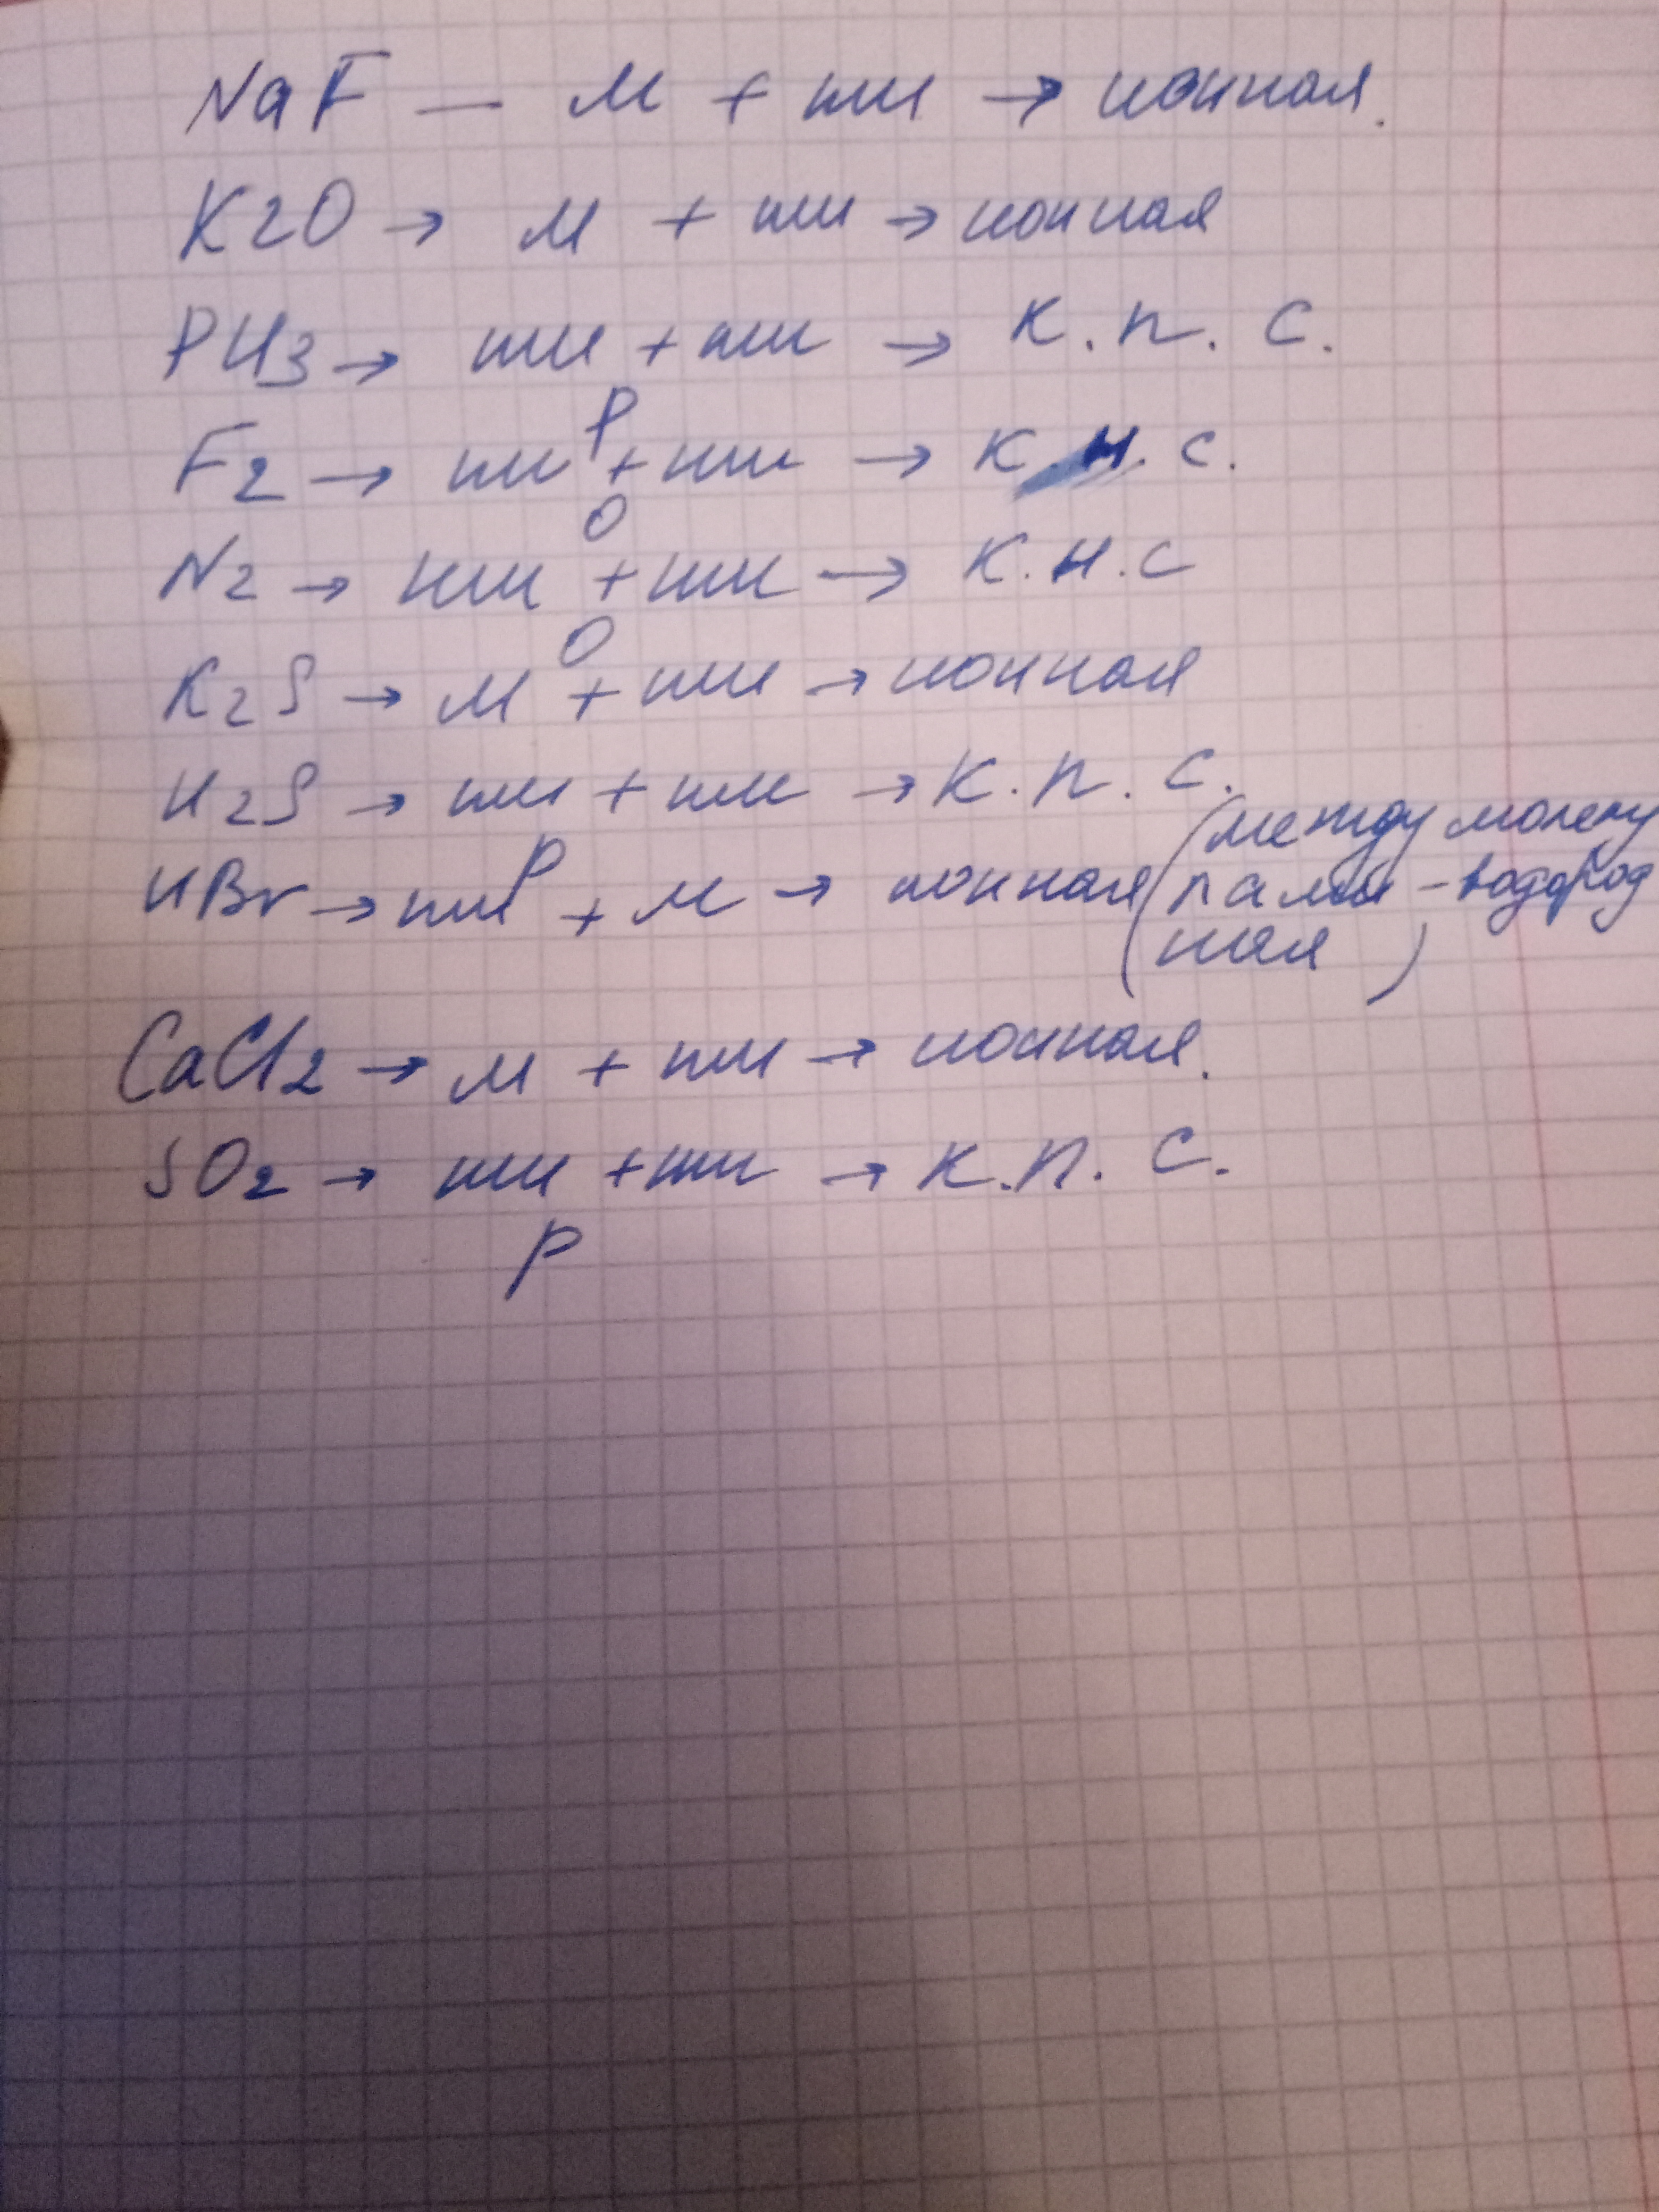 NaF — м + нм → ионная.
K2O → м + нм → ионная
PH3 → нм + нм → К. п. с.
р
F2 → нм + нм → К.н. с.
о
N2 → нм + нм → К.н.с
о
K2S → м + нм → ионная
H2S → нм + нм → К.п. с.
р
HBr → нм + м → ионная (между молеку
лами – водород
ная)
CaCl2 → м + нм → ионная.
SO2 → нм + нм → К.п. с.
р